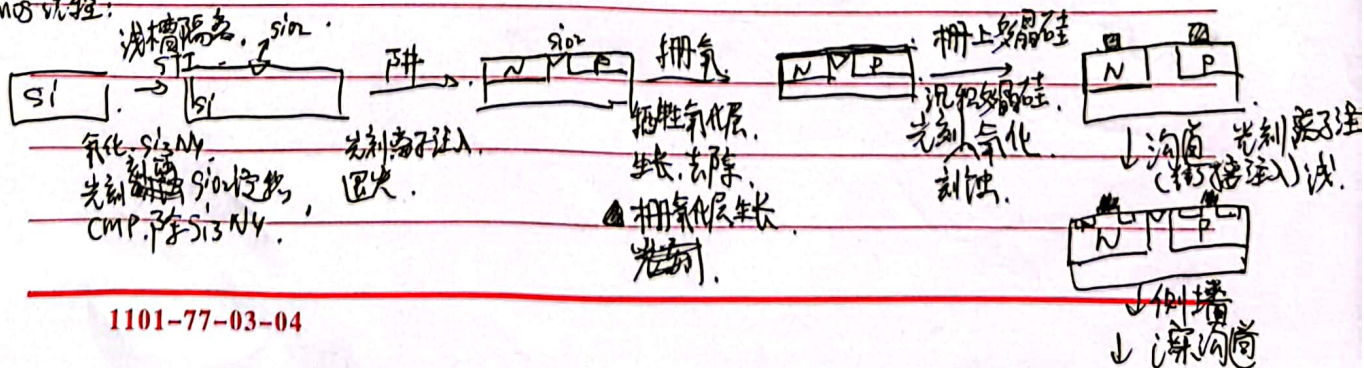 mos流程:
浅槽隔离. SiO2
STI
Si
Si
氧化. Si3N4.
光刻 SiO2
CMP. 除Si3N4.
阱
光刻离子注入.
退火.
SiO2
N P
栅氧
牺牲氧化层.
生长. 去除.
栅氧化层生长.
N P
栅上多晶硅
沉积多晶硅.
光刻 氧化.
刻蚀.
N P
↓ 沟道 光刻离子注
注入) 浅.
N P
↓ 侧墙
↓ 深沟道
1101-77-03-04